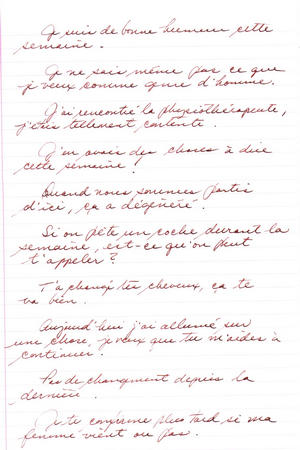 Je suis de bonne humeur cette
semaine.
Je ne sais même pas ce que
je veux comme genre d'homme.
J'ai rencontré la physiothérapeute,
j'étais tellement contente.
J'en avais des choses à dire
cette semaine!
Quand nous sommes partis
d'ici, ça a dégénéré.
Si on pète un coche durant la
semaine, est-ce qu'on peut
t'appeler?
T'a changé tes cheveux, ça te
va bien.
Aujourd'hui j'ai allumé sur
une chose, je veux que tu m'aides à
continuer.
Pas de changement depuis la
dernière.
Je te confirme plus tard si ma
femme vient ou pas.